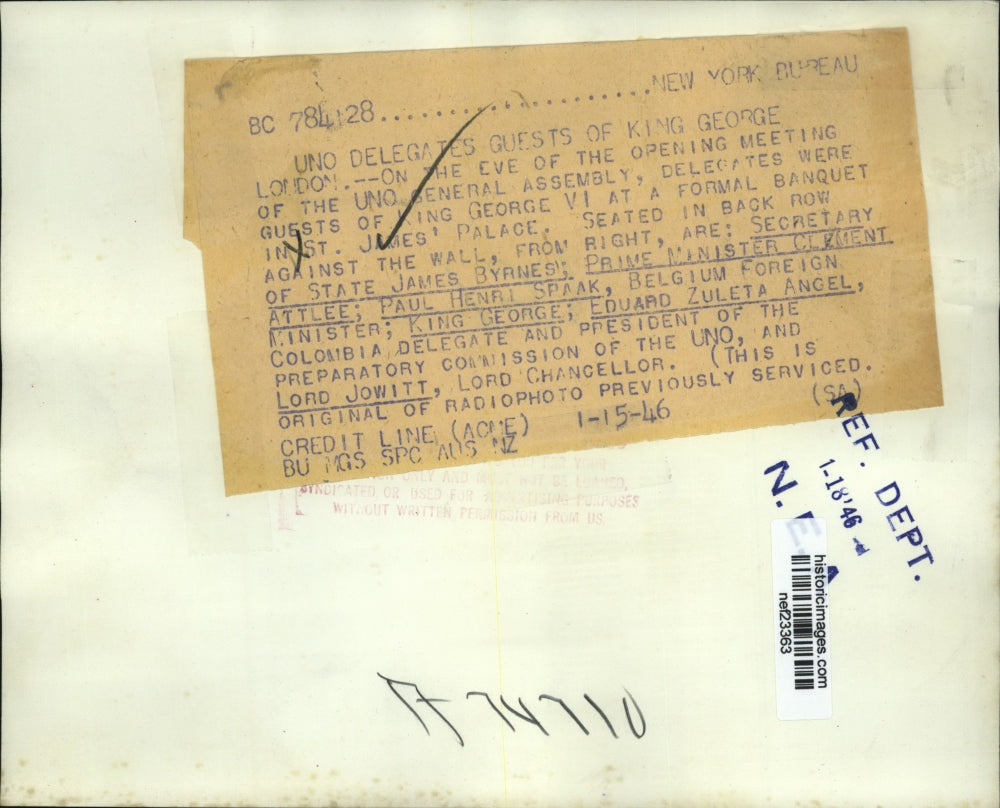 BC 784128....................NEW YORK BUREAU
UNO DELEGATES GUESTS OF KING GEORGE
LONDON.--ON THE EVE OF THE OPENING MEETING
OF THE UNO GENERAL ASSEMBLY, DELEGATES WERE
GUESTS OF KING GEORGE VI AT A FORMAL BANQUET
IN ST. JAMES' PALACE. SEATED IN BACK ROW
AGAINST THE WALL, FROM RIGHT, ARE: SECRETARY
OF STATE JAMES BYRNES; PRIME MINISTER CLEMENT
ATTLEE; PAUL HENRI SPAAK, BELGIUM FOREIGN
MINISTER; KING GEORGE; EDUARD ZULETA ANGEL,
COLOMBIA DELEGATE AND PRESIDENT OF THE
PREPARATORY COMMISSION OF THE UNO, AND
LORD JOWITT, LORD CHANCELLOR. (THIS IS
ORIGINAL OF RADIOPHOTO PREVIOUSLY SERVICED.
CREDIT LINE (ACME) 1-15-46 (SA)
BU MGS SPC AUS NZ
YOUR
ONLY AND MUST NOT BE LOANED,
SYNDICATED OR USED FOR ADVERTISING PURPOSES
WITHOUT WRITTEN PERMISSION FROM US
REF. DEPT.
1-18'46
N. E. A
historicimages.com
nef23363
74710